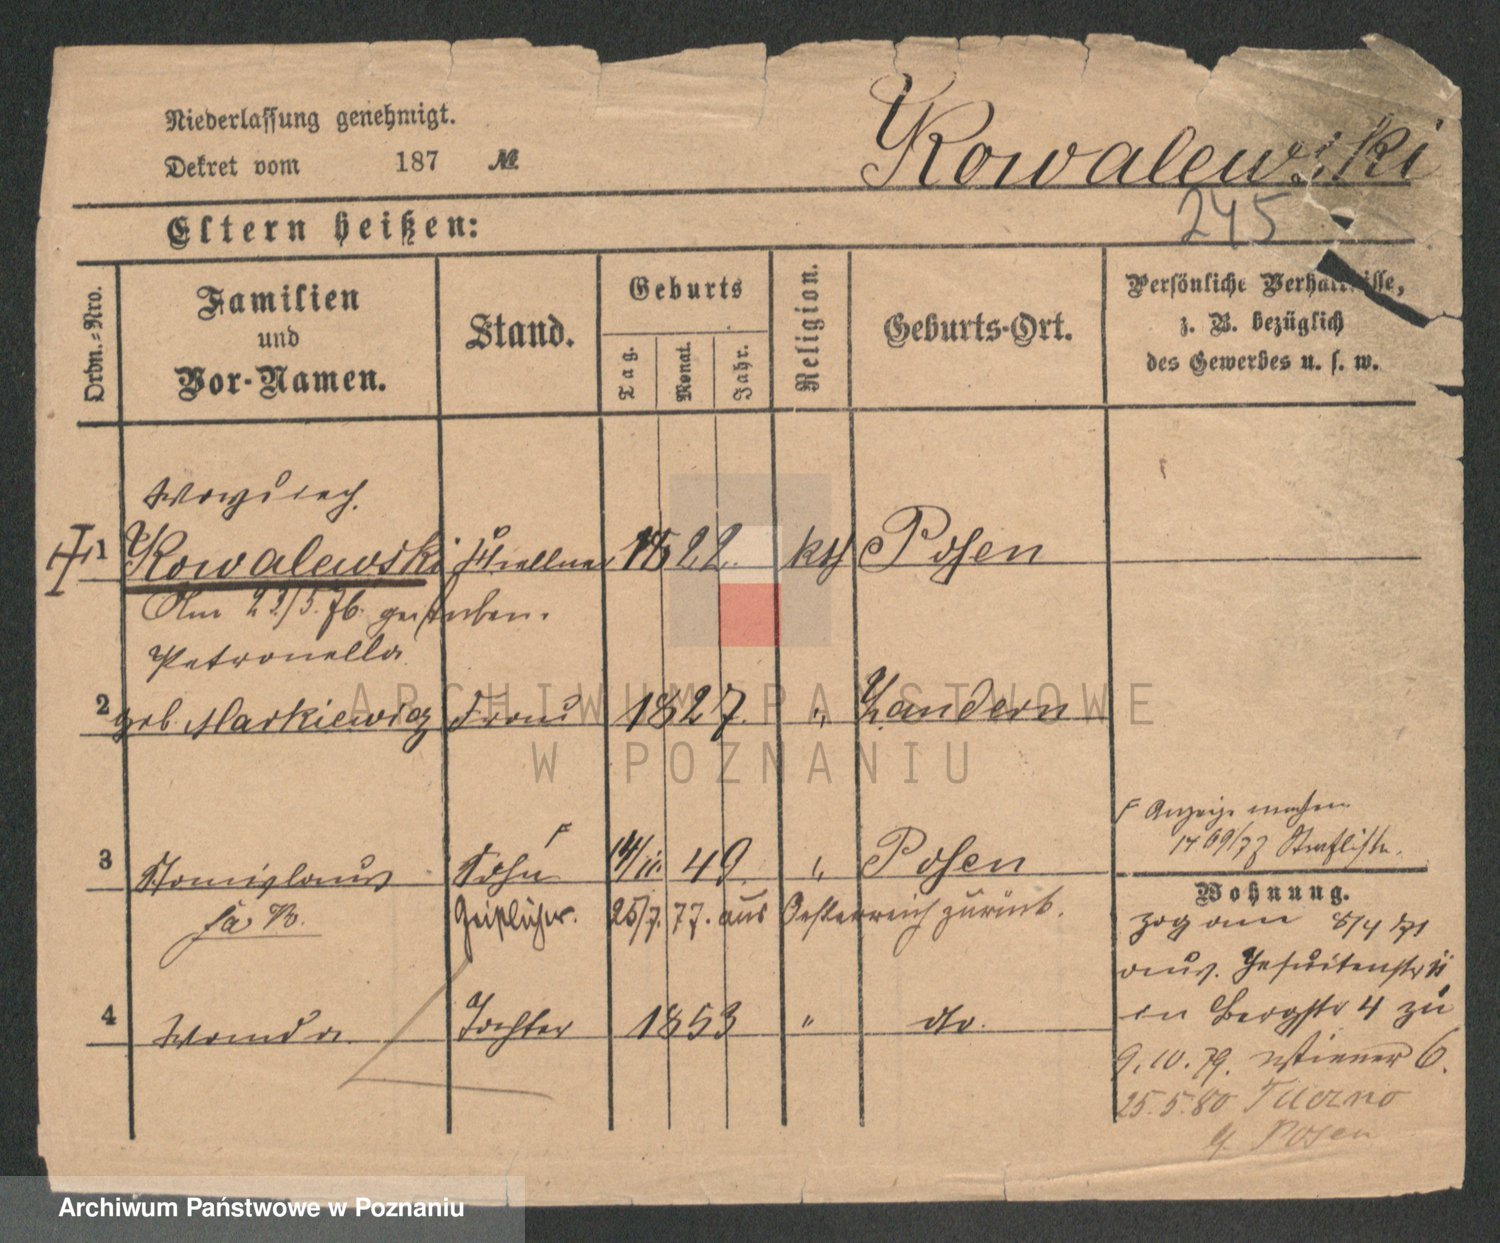 Niederlassung genehmigt.
Dekret vom 187 №
Kowalewski
245
Eltern heißen:
Ordn.-Nro.
Familien
und
Vor-Namen.
Stand.
Geburts
Tag.
Monat.
Jahr.
Religion.
Geburts-Ort.
Persönliche Verhältnisse,
z. B. bezüglich
des Gewerbes u. s. w.
Woyciech
1 Kowalewski 1822. kth Posen
Am 22/5. 76. gestorben.
Petronella
2 geb. Markiewicz Frau 1827. " Xandern
F Anzeige machen
1769/77 Strafliste.
3 Stanislaus Sohn F 14/11. 49. " Posen
Geistlicher. 25/7. 77. aus Oesterreich zurück.
4 Wanda Tochter 1853 " do.
Wohnung.
zog am 8/4 71
aus Jesuitenstr 11
in Bergstr 4 zu
9.10.79. Wiener 6.
25.5.80
Posen
ARCHIWUM PAŃSTWOWE
W POZNANIU
Archiwum Państwowe w Poznaniu